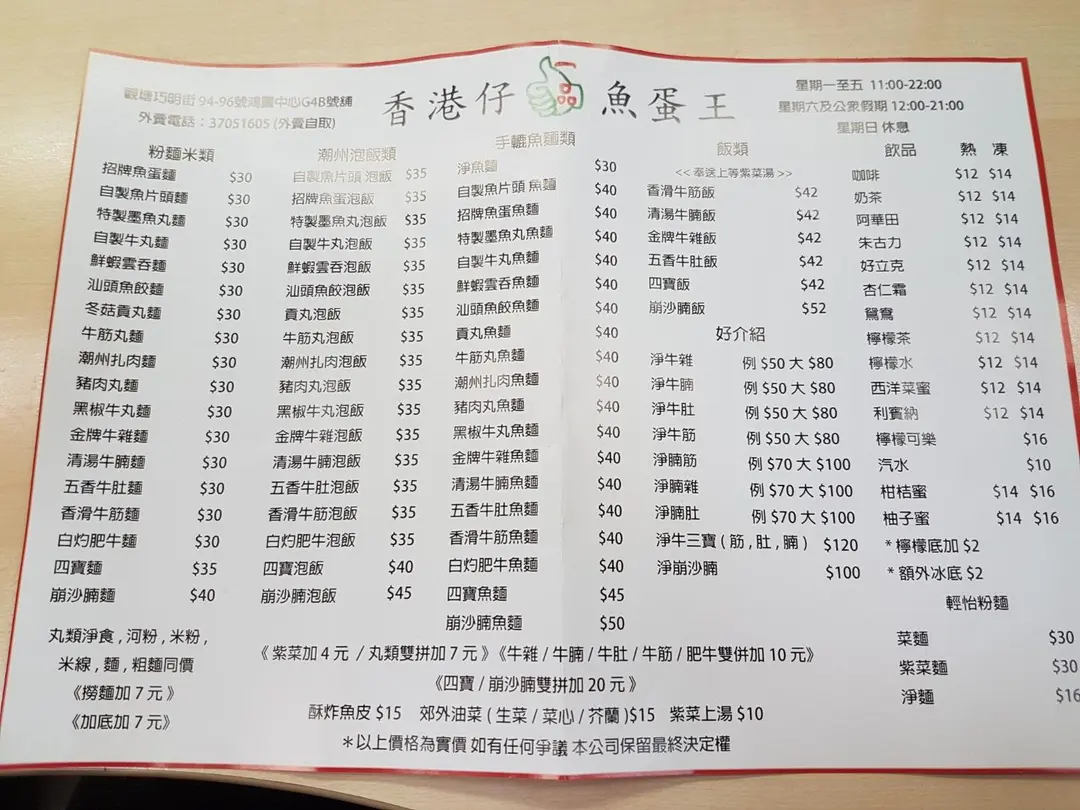 觀塘巧明街 94-96號鴻圖中心G4B號舖
外賣電話：37051605 (外賣自取)
香港仔 魚蛋王
星期一至五 11:00-22:00
星期六及公衆假期 12:00-21:00
星期日 休息
粉麵米類
招牌魚蛋麵 $30
自製魚片頭麵 $30
特製墨魚丸麵 $30
自製牛丸麵 $30
鮮蝦雲吞麵 $30
汕頭魚餃麵 $30
冬菇貢丸麵 $30
牛筋丸麵 $30
潮州扎肉麵 $30
豬肉丸麵 $30
黑椒牛丸麵 $30
金牌牛雜麵 $30
清湯牛腩麵 $30
五香牛肚麵 $30
香滑牛筋麵 $30
白灼肥牛麵 $30
四寶麵 $35
崩沙腩麵 $40
丸類淨食 , 河粉 , 米粉 ,
米線 , 麵 , 粗麵同價
《撈麵加 7 元 》
《加底加 7 元》
潮州泡飯類
自製魚片頭 泡飯 $35
招牌魚蛋泡飯 $35
特製墨魚丸泡飯 $35
自製牛丸泡飯 $35
鮮蝦雲吞泡飯 $35
汕頭魚餃泡飯 $35
貢丸泡飯 $35
牛筋丸泡飯 $35
潮州扎肉泡飯 $35
豬肉丸泡飯 $35
黑椒牛丸泡飯 $35
金牌牛雜泡飯 $35
清湯牛腩泡飯 $35
五香牛肚泡飯 $35
香滑牛筋泡飯 $35
白灼肥牛泡飯 $35
四寶泡飯 $40
崩沙腩泡飯 $45
手轆魚麵類
淨魚麵 $30
自製魚片頭 魚麵 $40
招牌魚蛋魚麵 $40
特製墨魚丸魚麵 $40
自製牛丸魚麵 $40
鮮蝦雲吞魚麵 $40
汕頭魚餃魚麵 $40
貢丸魚麵 $40
牛筋丸魚麵 $40
潮州扎肉魚麵 $40
豬肉丸魚麵 $40
黑椒牛丸魚麵 $40
金牌牛雜魚麵 $40
清湯牛腩魚麵 $40
五香牛肚魚麵 $40
香滑牛筋魚麵 $40
白灼肥牛魚麵 $40
四寶魚麵 $45
崩沙腩魚麵 $50
飯類
<< 奉送上等紫菜湯 >>
香滑牛筋飯 $42
清湯牛腩飯 $42
金牌牛雜飯 $42
五香牛肚飯 $42
四寶飯 $42
崩沙腩飯 $52
好介紹
淨牛雜 例 $50 大 $80
淨牛腩 例 $50 大 $80
淨牛肚 例 $50 大 $80
淨牛筋 例 $50 大 $80
淨腩筋 例 $70 大 $100
淨腩雜 例 $70 大 $100
淨腩肚 例 $70 大 $100
淨牛三寶 ( 筋 , 肚 , 腩 ) $120
淨崩沙腩 $100
飲品 熱 凍
咖啡 $12 $14
奶茶 $12 $14
阿華田 $12 $14
朱古力 $12 $14
好立克 $12 $14
杏仁霜 $12 $14
鴛鴦 $12 $14
檸檬茶 $12 $14
檸檬水 $12 $14
西洋菜蜜 $12 $14
利賓納 $12 $14
檸檬可樂 $16
汽水 $10
柑桔蜜 $14 $16
柚子蜜 $14 $16
* 檸檬底加 $2
* 額外冰底 $2
輕怡粉麵
菜麵 $30
紫菜麵 $30
淨麵 $16
《 紫菜加 4 元 / 丸類雙拼加 7 元 》《牛雜 / 牛腩 / 牛肚 / 牛筋 / 肥牛雙併加 10 元》
《四寶 / 崩沙腩雙拼加 20 元 》
酥炸魚皮 $15 郊外油菜 ( 生菜 / 菜心 / 芥蘭 )$15 紫菜上湯 $10
＊以上價格為實價 如有任何爭議 本公司保留最終決定權